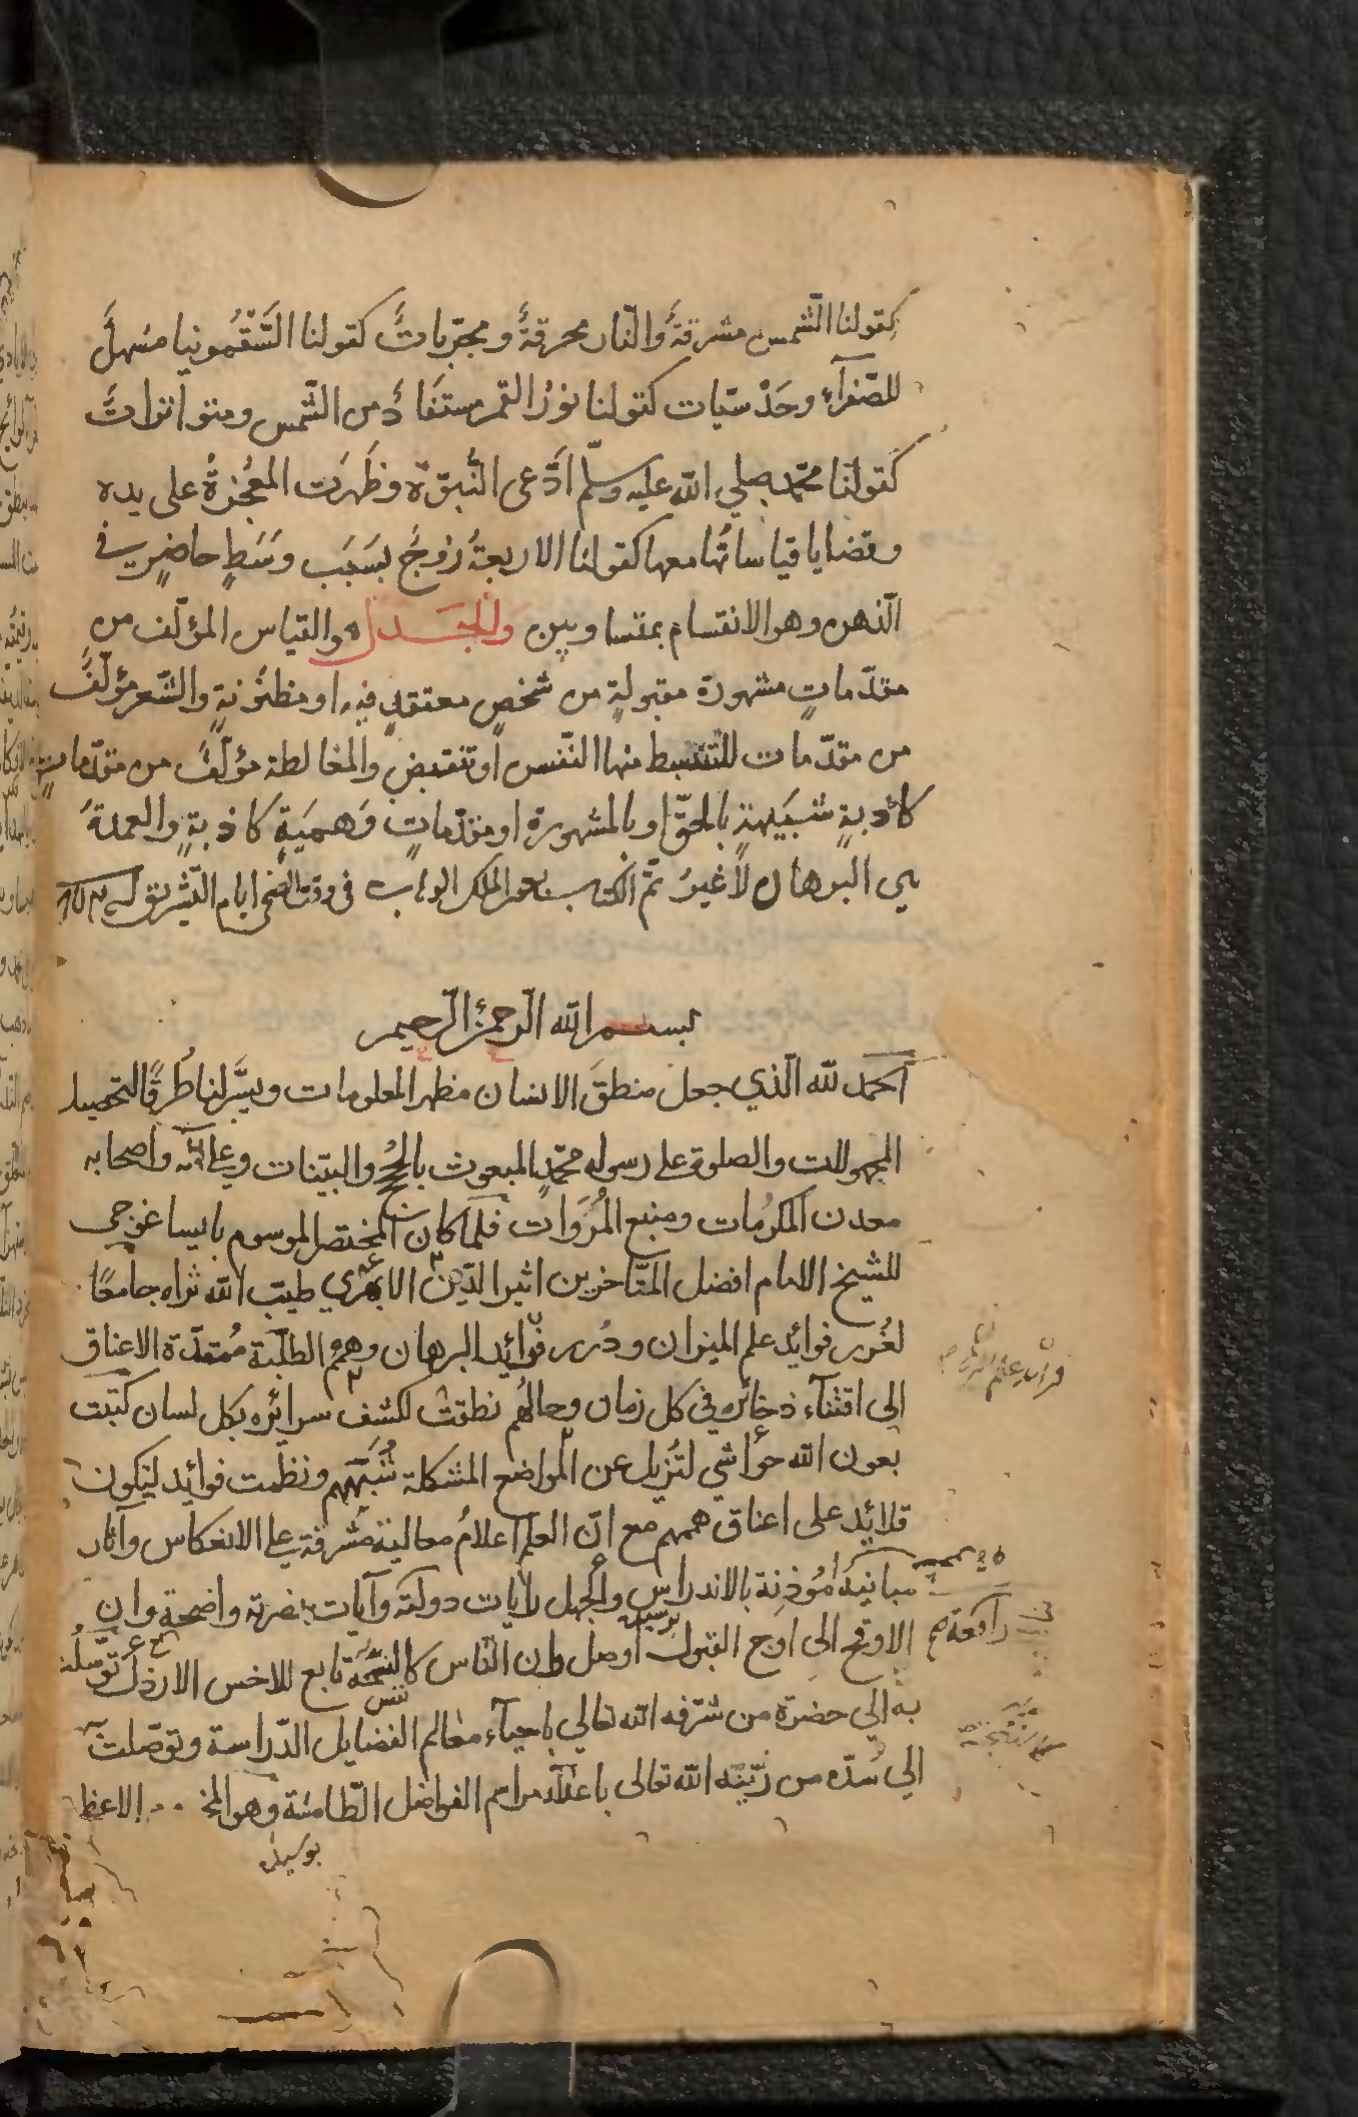 كقولنا الشّمس مشرقةٌ والنّار محرقةٌ ومجرّباتٌ كقولنا السَّقَمُونيا مسُهلٌ
للصّفرآء وحَدْسيّات كقولنا نورُ القمر مستفَادٌ من الشّمس ومتواتراتٌ
كقولنا محمّد صلي الله عليه وسلّم ادَّعى النّبوّة وظَهرَت المعُجزةُ على يده
وقضايا قياساتُها معها كقولنا الاربعةُ زوجٌ بسَبَب وسَطٍ حاضرٍ في
الذهن وهو الانقسام بمتساويين والجدل هو القياس المؤلّف من
مقدّماتٍ مشهورة مقبولةٍ من شخصٍ معتقدٍ فيه او مظنونةٍ والشّعر مؤلّفٌ
من مقدّمات تنبسط منها النّفس او تنقبض والمغالطة مؤلّفٌ من مقدّماتٍ
كاذبةٍ شبيهةٍ بالحقّ او بالمشهورة او مقدّماتٍ وَهميَةٍ كاذبةٍ والعمدةُ
هي البرهان لا غيرُ تمّ الكتاب بعون الملك الوهاب في وقت الضحى ايام التّشريق
بسم الله الرّحمن الرّحيم
الحمد للّه الّذي جعل منطقَ الانسان مظهر المعلومات ويسَّر لنا طُرقًا لتحصيل
المجهولات والصلوة على رسوله محمّدٍ المبعوث بالحُجج والبيّنات وعلى آله واصحابه
معدن المكرُمات ومنبع المُرُوَات فلمّا كان المختصر الموسوم بايساغوجى
للشيخ الامام افضل المتأخرين اثير الدّين الابهري طيّب الله ثراه جامعًا
لغُرر فوايد علم الميزان ودُرر فوائد البرهان وهمم الطلَبة مُمتدّة الاعناق
فرائد علم
الى اقتنآء ذخائره في كل زمان وحالهُم نطقت لكشف سرائره بكل لسان كتبت
بعون الله حواشي لتُزيل عن المواضع المشكلة شُبَههم ونظّمت فوائد ليكون
قلائد على اعناق هممهم مع انّ العلم اعلامُ معاليه مشرفة على الانعكاس وآثار
مبانيه مؤذِنة بالاندراس والجهل رايات دولته وآيات نضرته واضحة وان
الاوقح الى اوج القبول اوصل وان النّاس تابع للاخس الارذل توسّلت
به الي حضرة من شرّفه الله تعالي باحيآء معالم الفضايل الدّراسة وتوصّلت
الي سُدّه من زيّنه الله تعالى باعلآء مراسم الفواضل الطّامسة وهو
بوسيله